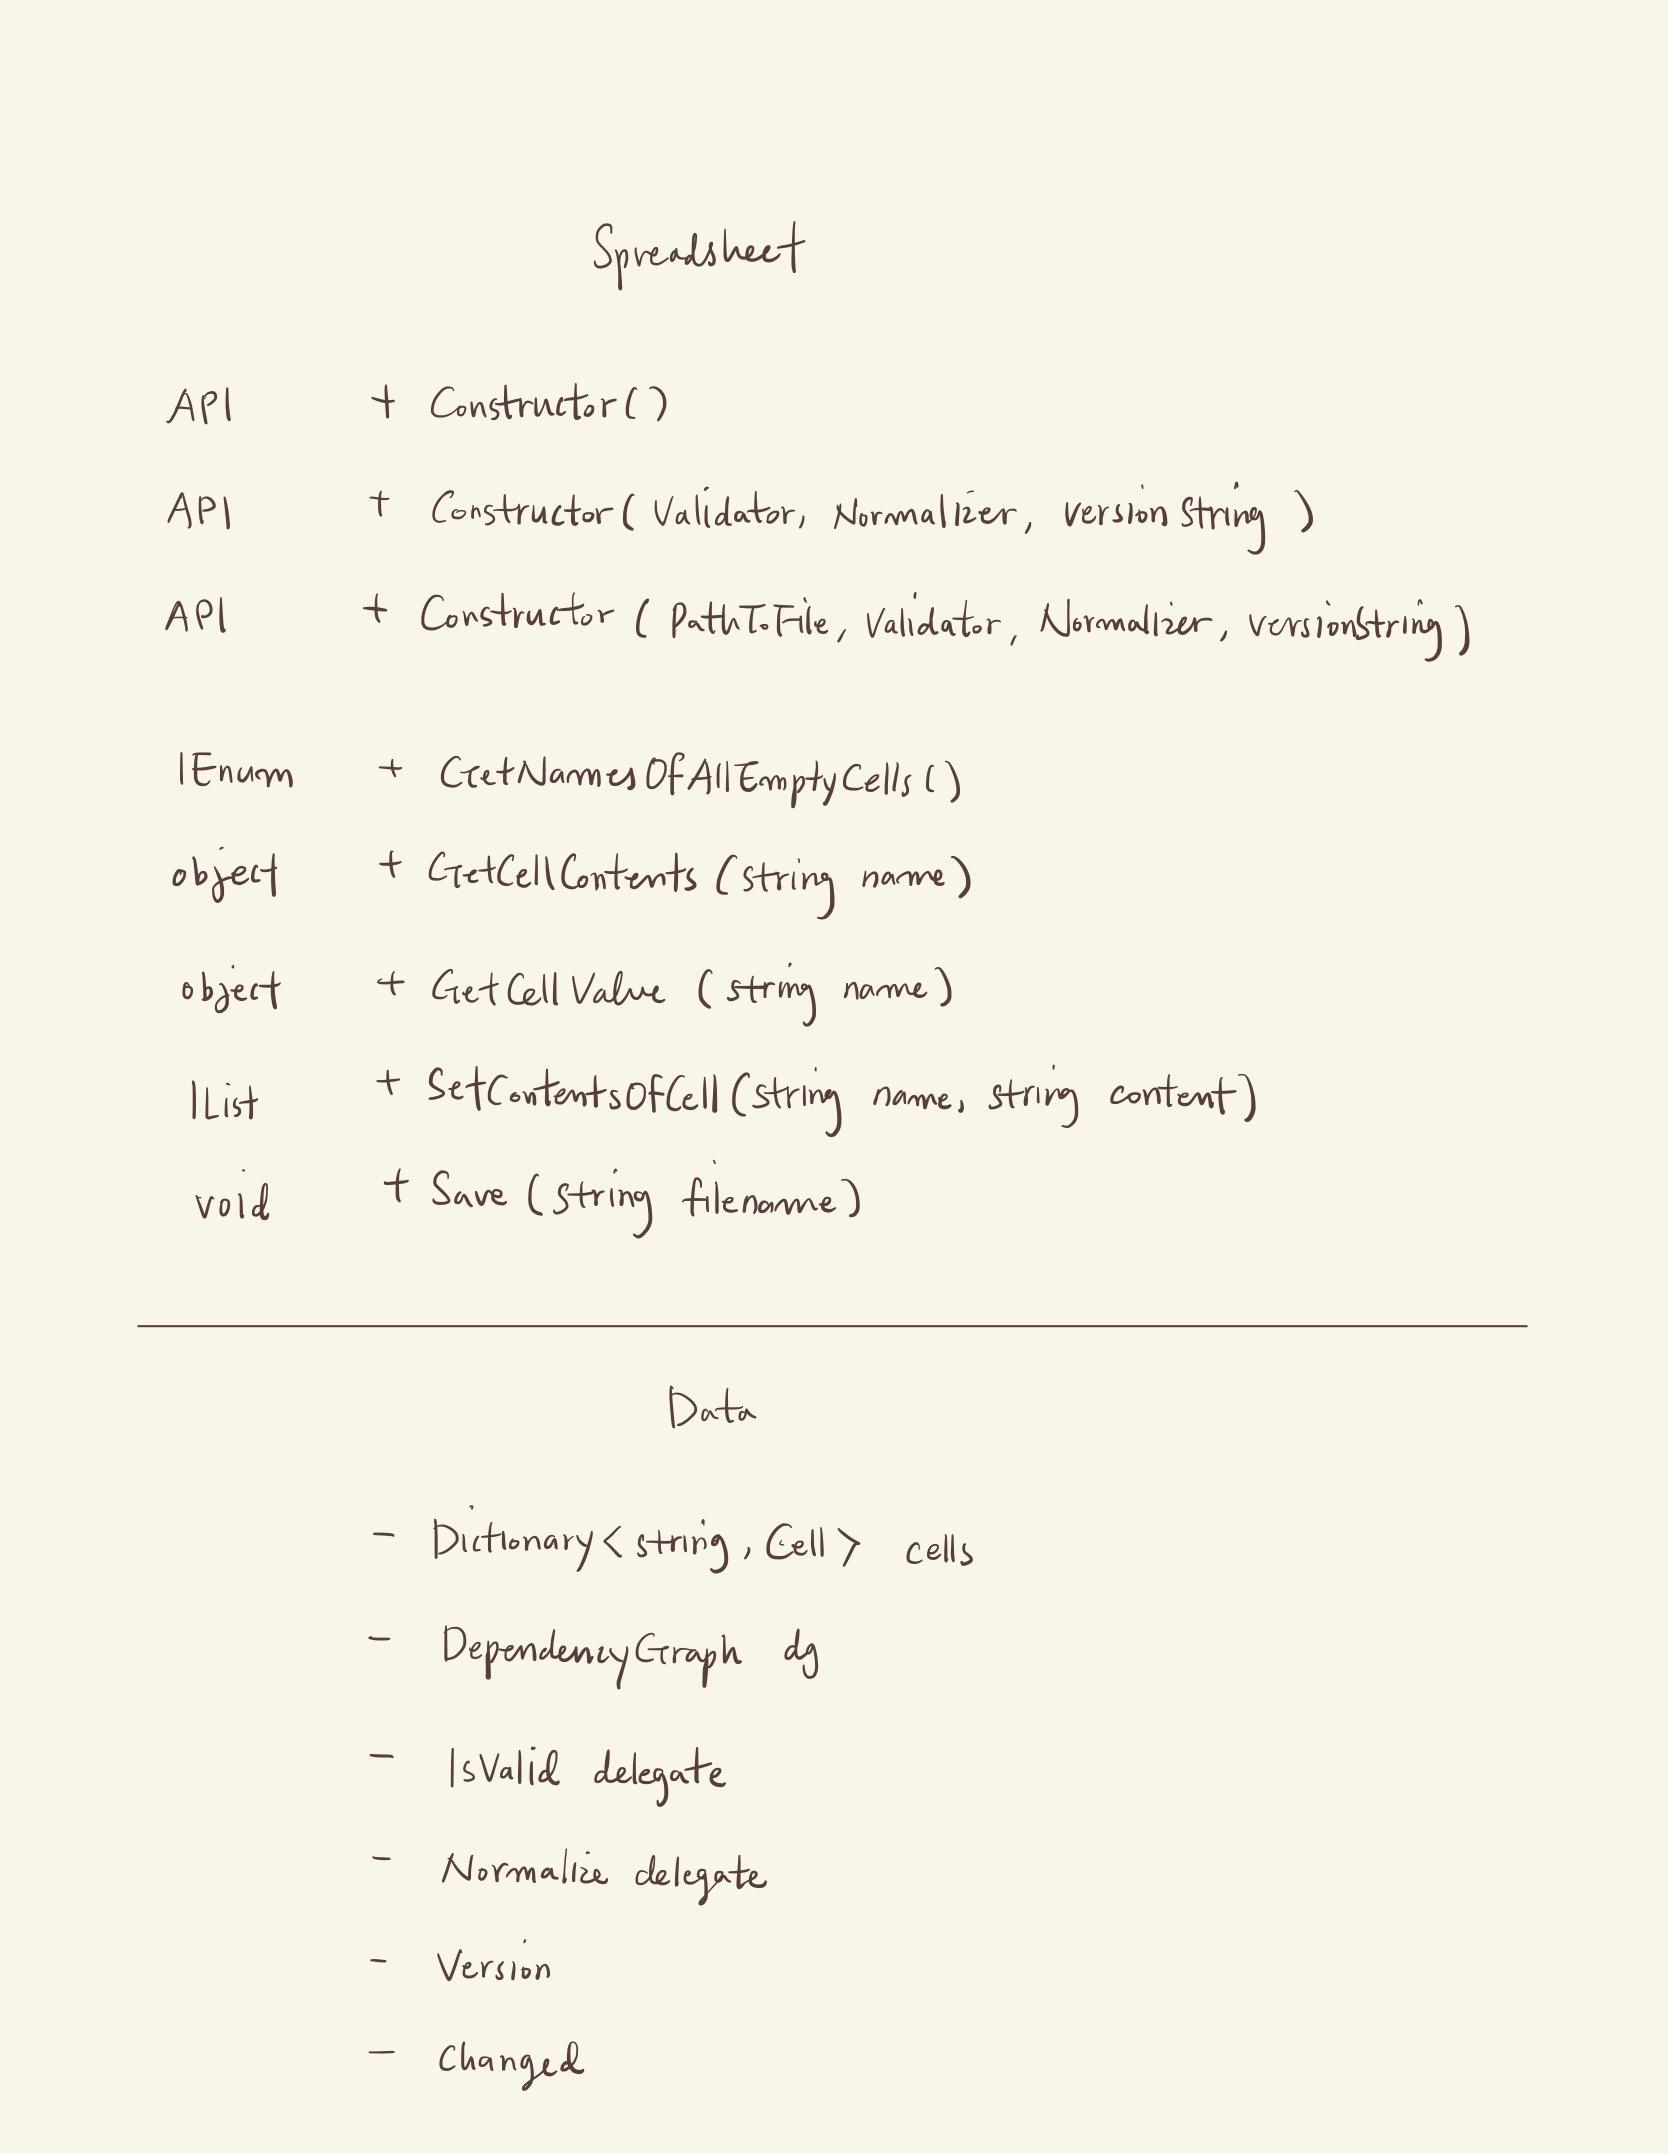 Spreadsheet
API + Constructor()
API + Constructor(Validator, Normalizer, versionString)
API + Constructor(PathToFile, Validator, Normalizer, versionString)
IEnum + GetNamesOfAllEmptyCells()
object + GetCellContents(string name)
object + GetCellValue (string name)
IList + SetContentsOfCell(string name, string content)
void + Save (string filename)
Data
- Dictionary<string, Cell> cells
- DependencyGraph dg
- IsValid delegate
- Normalize delegate
- Version
- Changed